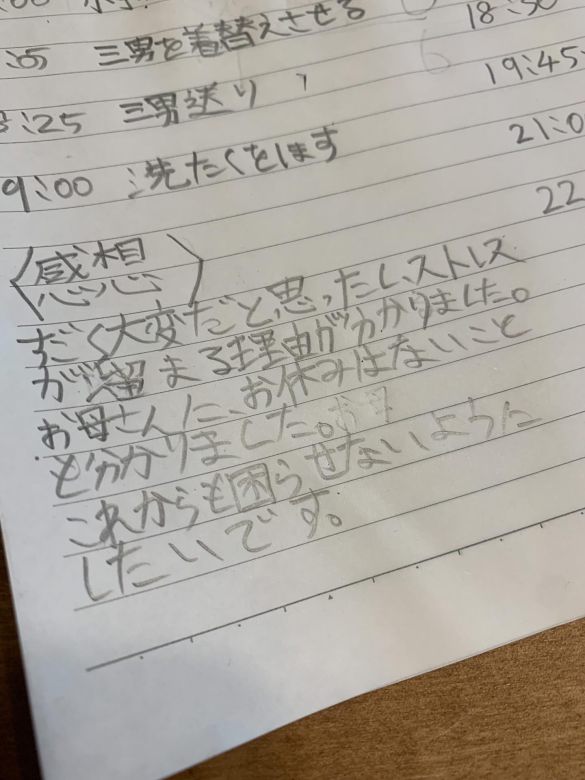 :05 三男を着替えさせる
18:30
8:25 三男送り
19:45
9:00 洗たくをします
21:0
22
〈感想〉
すごく大変だと思ったし、ストレス
が溜まる理由がわかりました。
お母さんに、お休みはないこと
がわかりました。
これからも困らせないように
したいです。